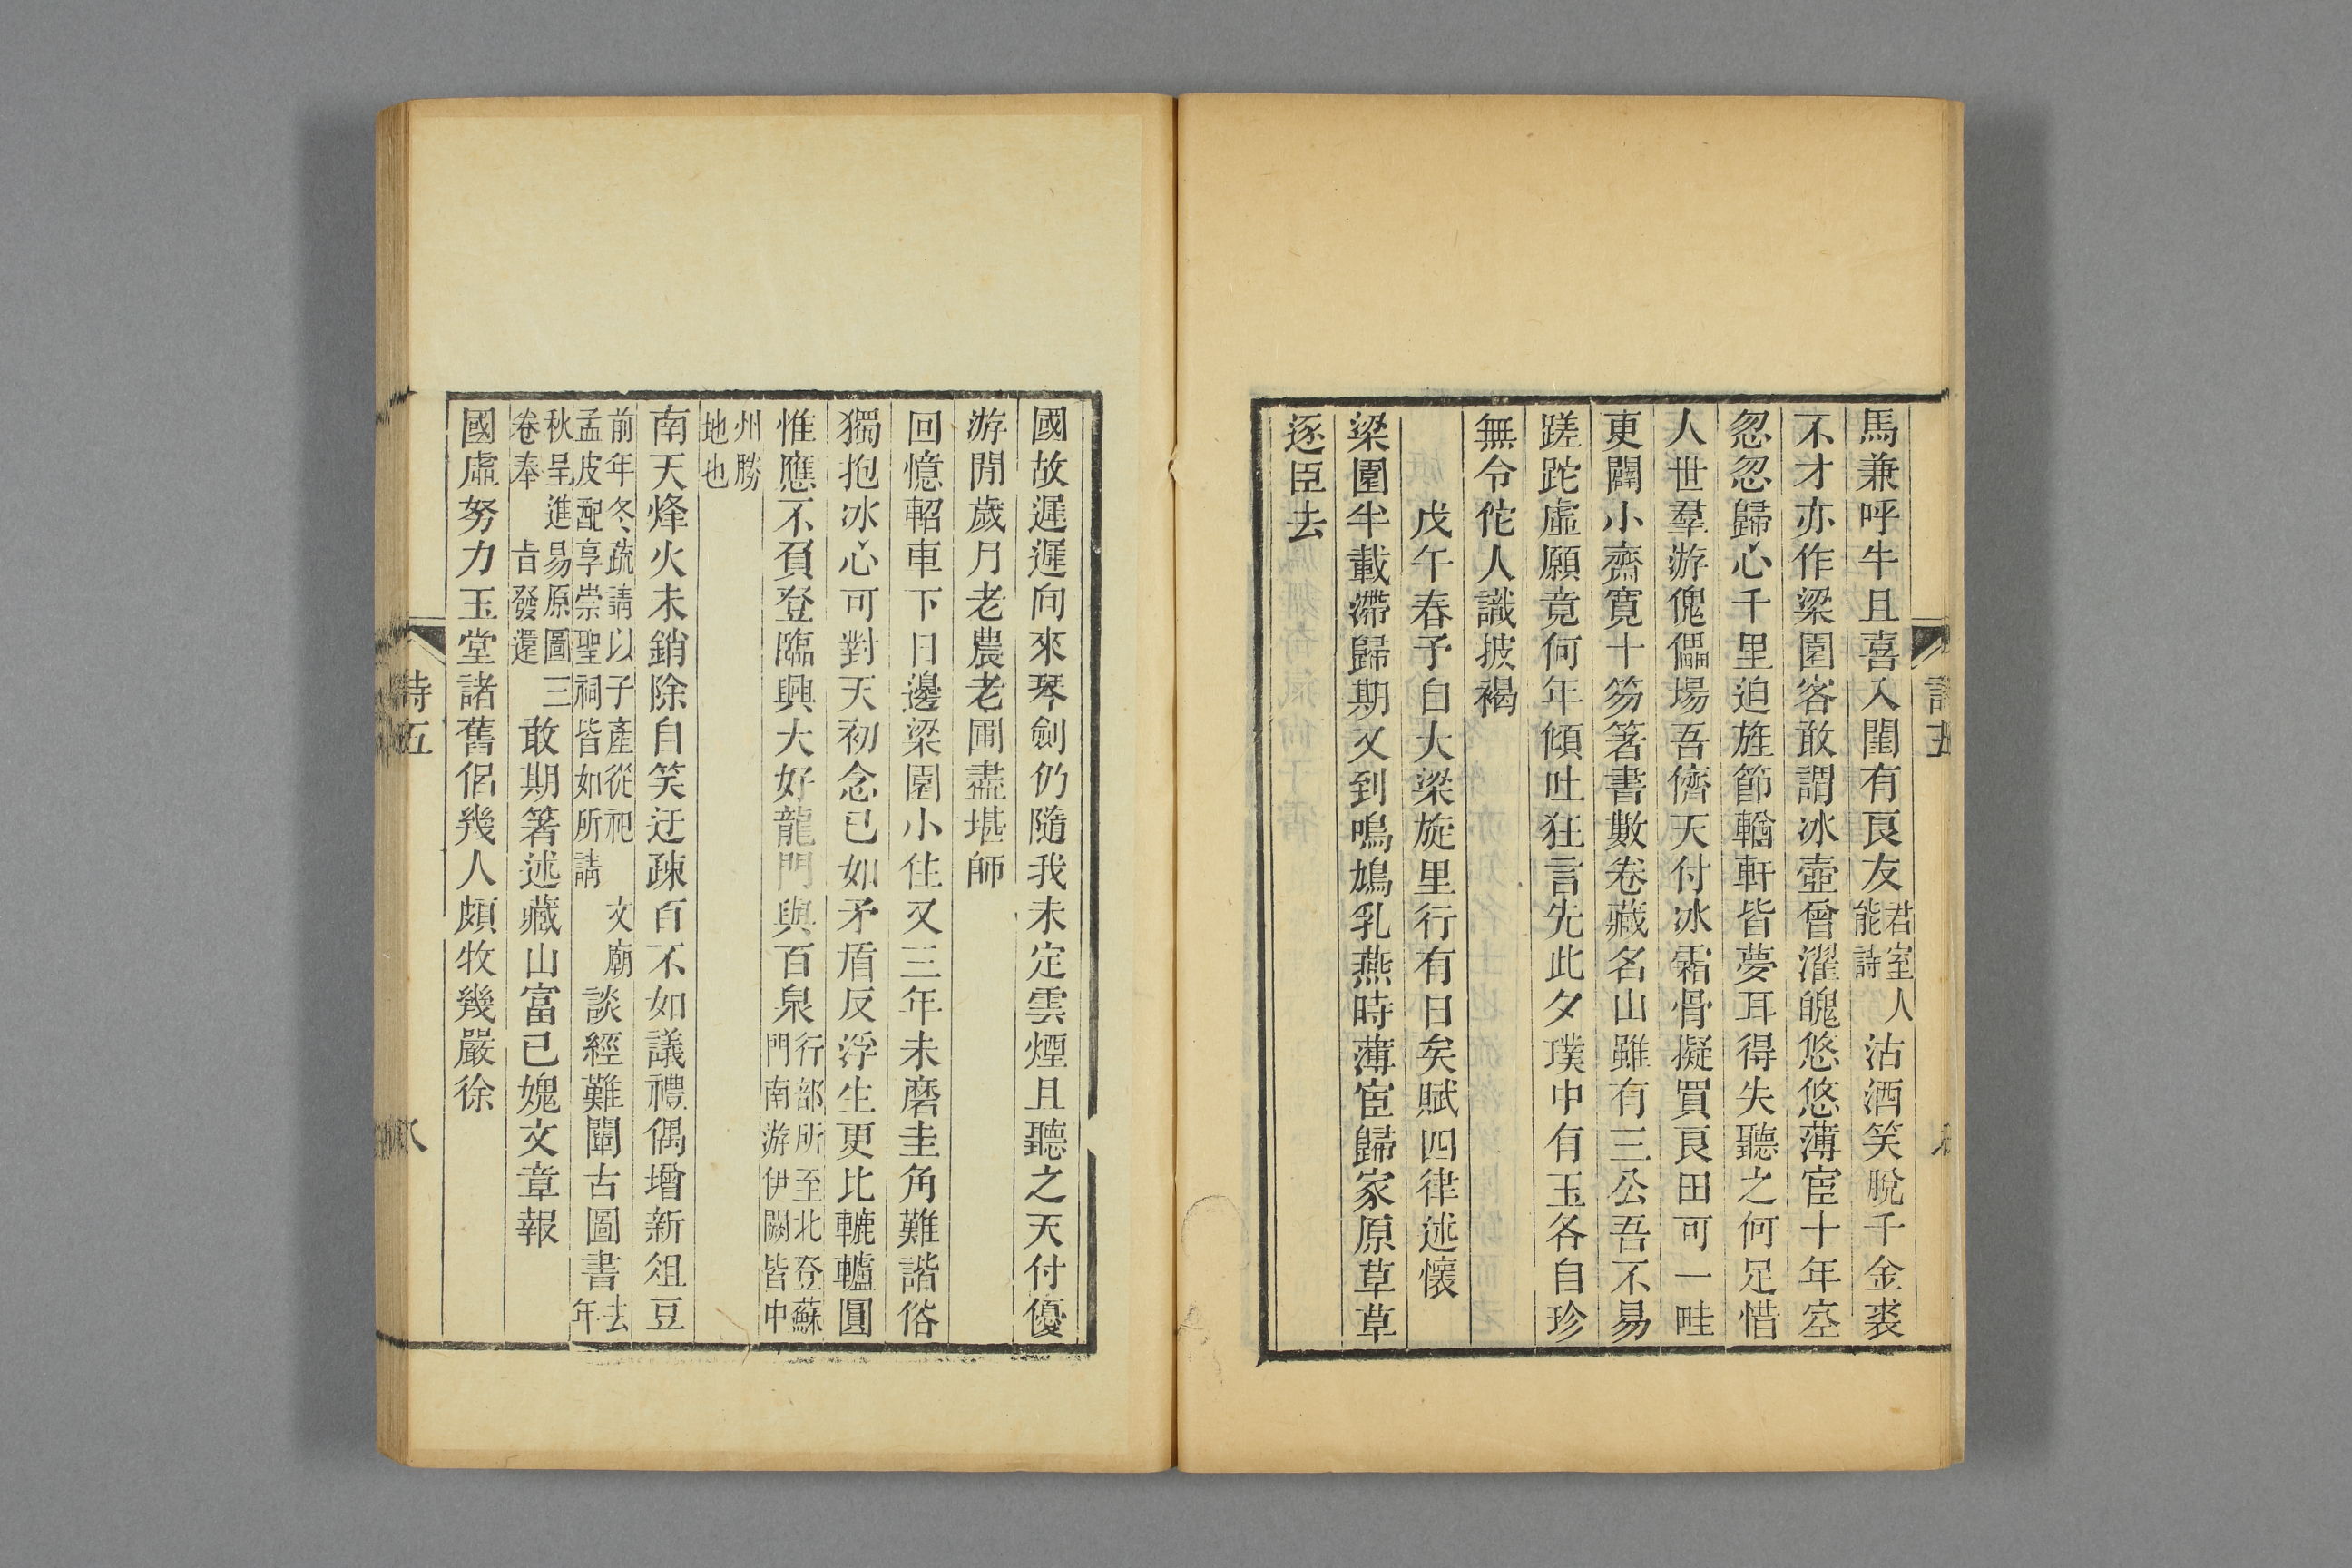 馬兼呼牛且喜入闈有良友君室人能詩沽酒笑脫千金裘
不才亦作梁園客敢謂冰壺曾濯魄悠悠薄宦十年空
忽忽歸心千里迫旌節輶軒皆夢耳得失聽之何足惜
人世羣游傀儡場吾儕天付冰霜骨擬買良田可一畦
更闢小齋寬十笏箸書數卷藏名山雖有三公吾不易
蹉跎虛願竟何年傾吐狂言先此夕璞中有玉各自珍
無令佗人識披褐
戊午春予自大梁旋里行有日矣賦四律述懷
梁園半載滯歸期又到鳴鳩乳燕時薄宦歸家原草草
逐臣去
國故遲遲向來琴劍仍隨我未定雲煙且聽之天付優
游閒歲月老農老圃盡堪師
回憶軺車下日邊梁園小住又三年未磨圭角難諧俗
獨抱冰心可對天初念已如矛盾反浮生更比轆轤圓
惟應不負登臨興大好龍門與百泉行部所至北登蘇門南游伊闕皆中
州勝地也
南天烽火未銷除自笑迂疎百不如議禮偶增新俎豆
前年冬疏請以子產從祀文廟孟皮配享崇聖祠皆如所請談經難闡古圖書去年
秋呈進易原圖三卷奉旨發還敢期箸述藏山富已媿文章報
國虛努力玉堂諸舊侶幾人頗牧幾嚴徐
詩五